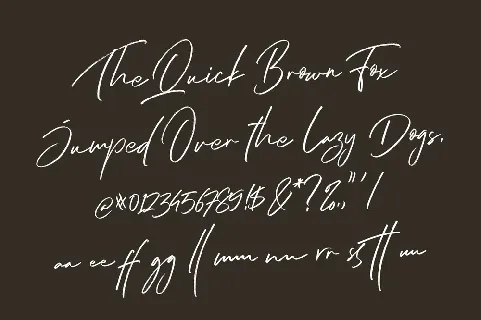 The Quick Brown Fox
Jumped Over the Lazy Dogs.
@#0123456789!$&*?%.,"'/
aa ee ff gg ll mm nn rr ss tt uu